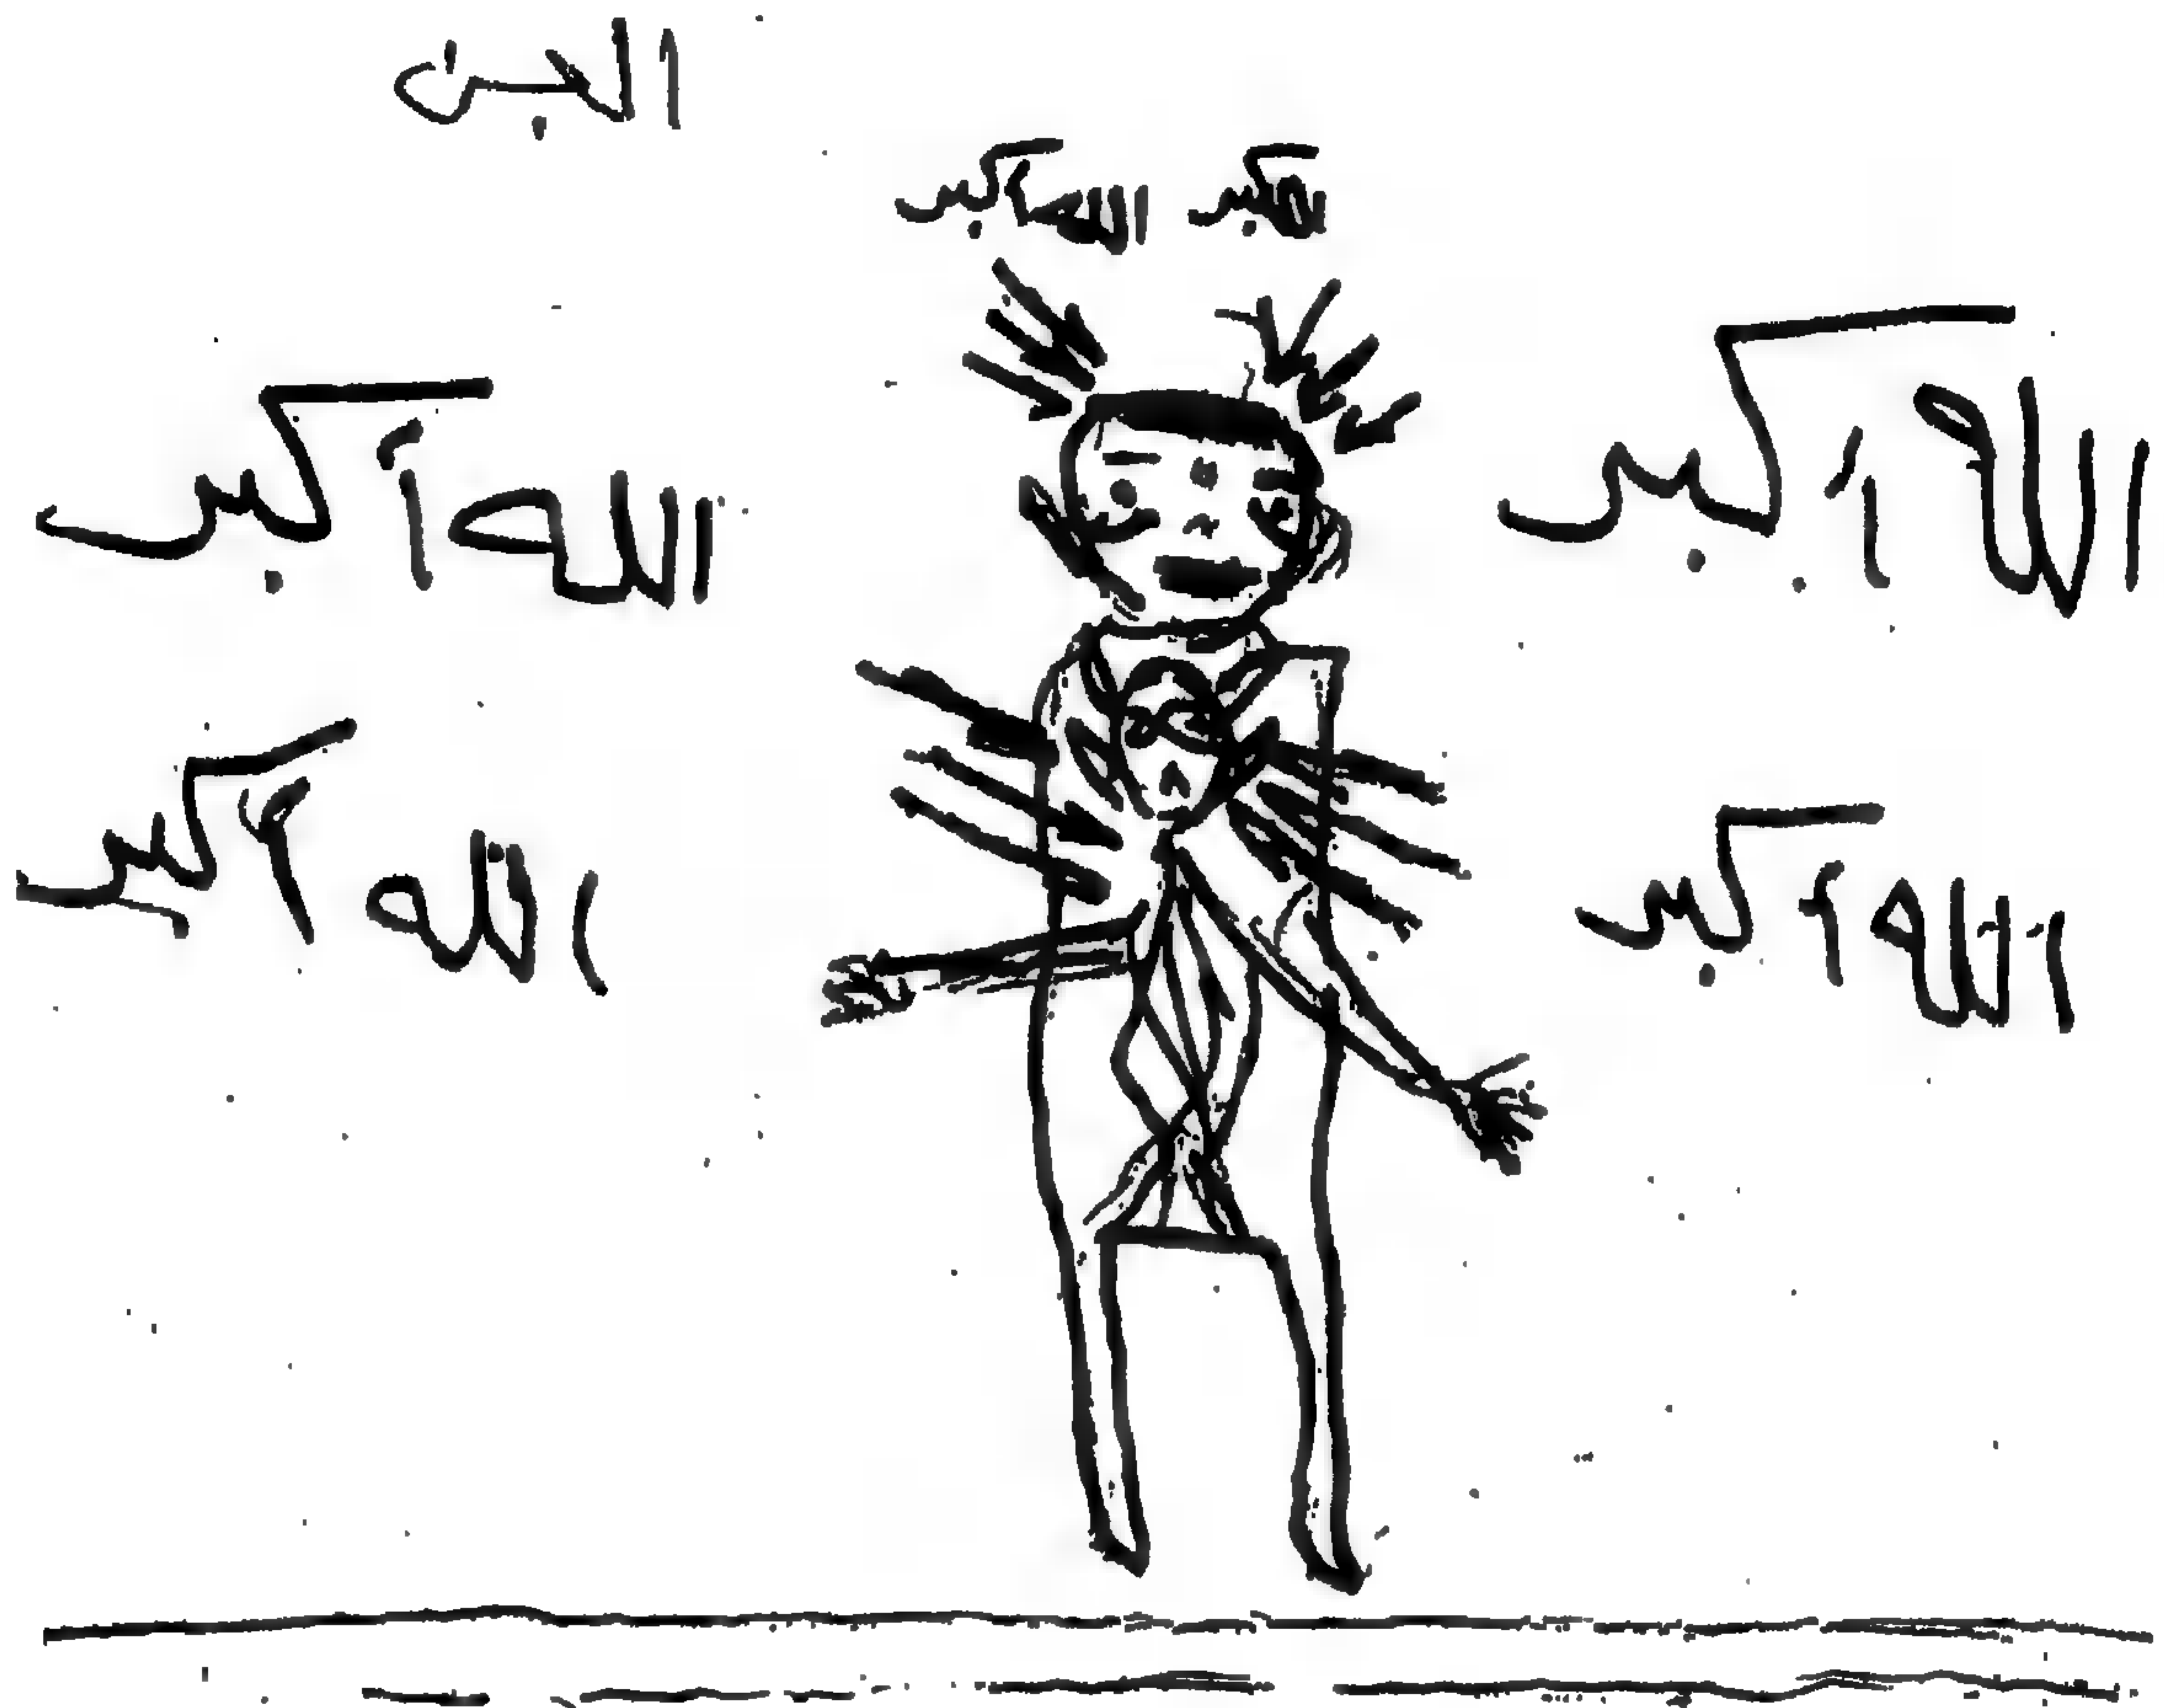 الجن
أكبر الله أكبر
الله أكبر
الله أكبر
الله أكبر
الله أكبر